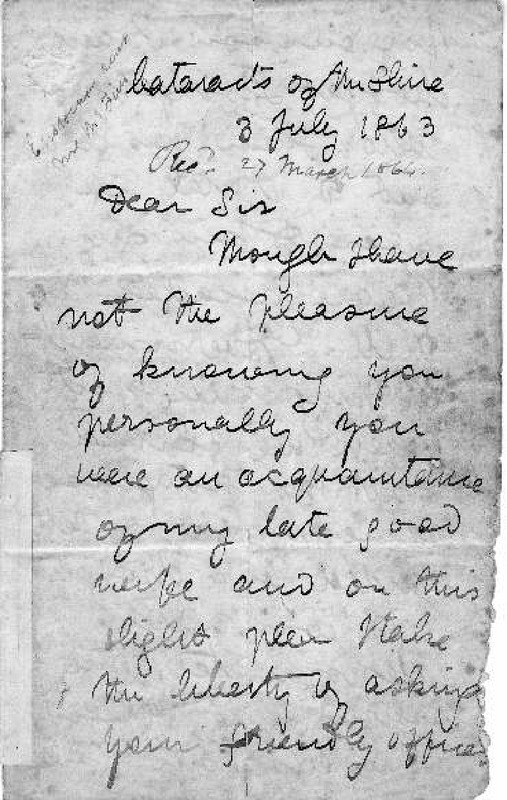 Cataracts of the Shire
3 July 1863
Recd. 27 March 1864.
Dear Sir
Though I have
not the pleasure
of knowing you
personally you
were an acquaintance
of my late good
wife and on this
slight plea I take
the liberty of asking
your friendly offices